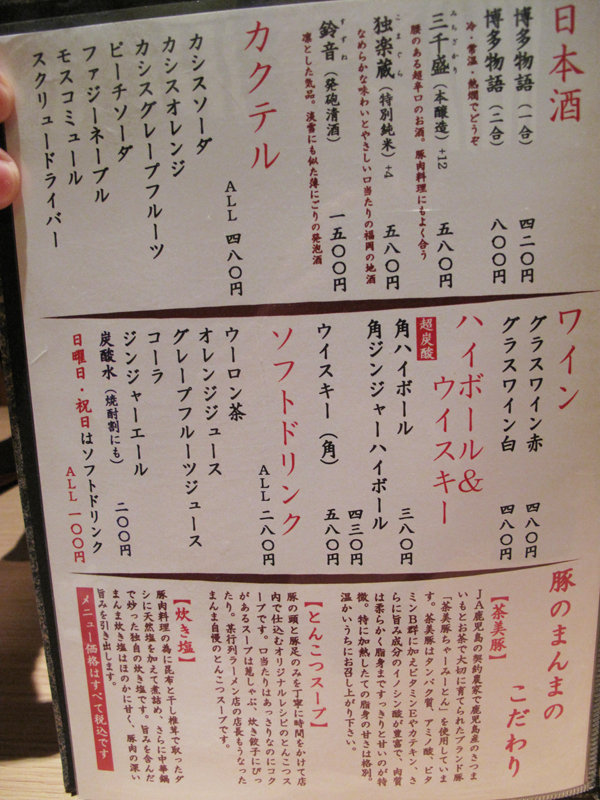 日本酒
博多物語（一合） 四二〇円
博多物語（二合） 八〇〇円
冷・常温・熱燗でどうぞ
三千盛（本醸造）+12 五八〇円
みちざかり
腰のある超辛口のお酒。豚肉料理にもよく合う
独楽蔵（特別純米）+4 五八〇円
こまぐら
なめらかな味わいとやさしい口当たりの福岡の地酒
鈴音（発砲清酒） 一五〇〇円
すずね
凛とした気品。淡雪にも似た薄にごりの発泡酒
カクテル
ALL 四八〇円
カシスソーダ
カシスオレンジ
カシスグレープフルーツ
ピーチソーダ
ファジーネーブル
モスコミュール
スクリュードライバー
ワイン
グラスワイン赤 四八〇円
グラスワイン白 四八〇円
ハイボール&
ウイスキー
超炭酸
角ハイボール 三八〇円
角ジンジャーハイボール 四三〇円
ウイスキー（角） 五八〇円
ソフトドリンク
ALL 二八〇円
ウーロン茶
オレンジジュース
グレープフルーツジュース
コーラ
ジンジャーエール
炭酸水（焼酎割にも） 二〇〇円
日曜日・祝日はソフトドリンク
ALL 一〇〇円
豚のまんまの
こだわり
【茶美豚】
JA鹿児島の契約農家で鹿児島産のさつま
いもとお茶で大切に育てられたブランド豚
「茶美豚とんちゃーみーとん」を使用していま
す。茶美豚はタンパク質、アミノ酸、ビタ
ミンB群に加えビタミンEやカテキン、さ
らに旨み成分のイノシン酸が豊富で、肉質
は柔らかく脂身まですっきりと甘いのが特
徴。特に加熱したての脂身の甘さは格別。
温かいうちにお召し上がり下さい。
【とんこつスープ】
豚の頭と豚足のみを丁寧に時間をかけて店
内で仕込むオリジナルレシピのとんこつス
ープです。口当たりはあっさりなのにコク
があるスープは葱しゃぶ、炊き餃子にぴっ
たり。某行列ラーメン店の店長もうなった
まんま自慢のとんこつスープです。
【炊き塩】
豚肉料理の為に昆布と干し椎茸で取ったダ
シに天然塩を加えて煮詰め、さらに中華鍋
で炒った独自の炊き塩です。旨みを含んだ
まんま炊き塩はほのかに甘く、豚肉の深い
旨みを引き出します。
メニュー価格はすべて税込です